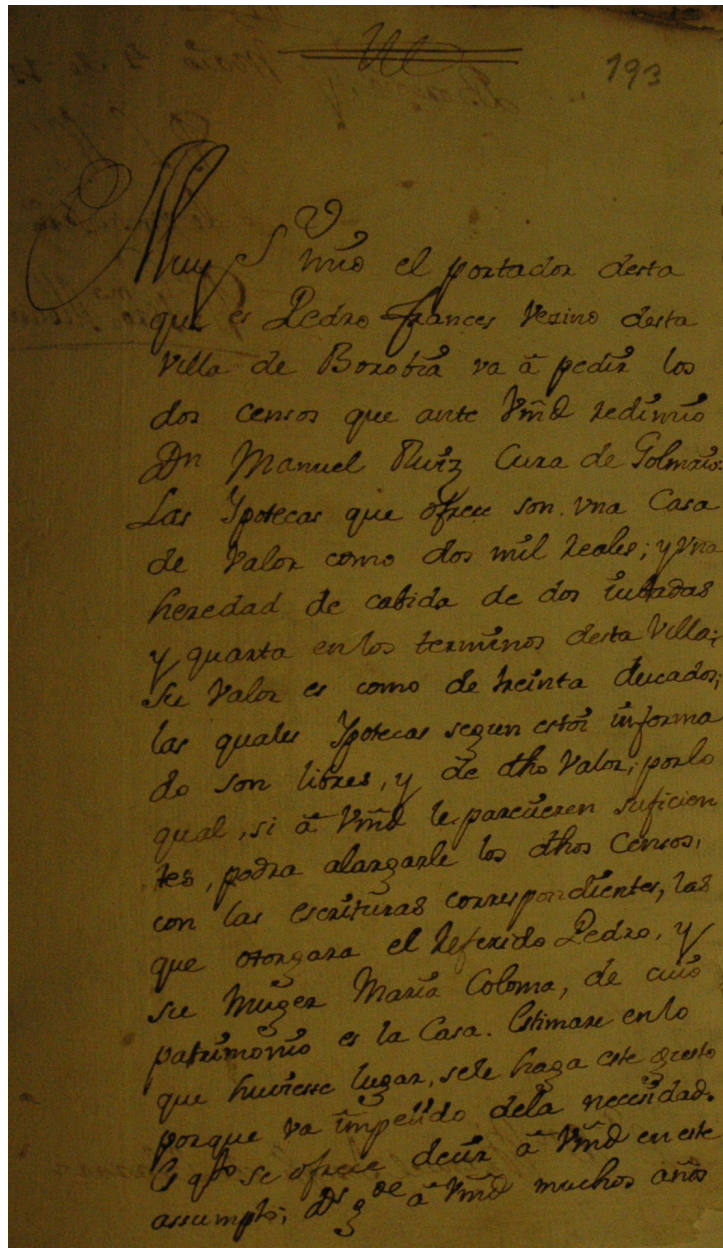 193
Muy Sr mio el portador desta
que es Pedro frances Vezino desta
Villa de Borobia va â pedir los
dos censos que ante Vmd redimio
Dn Manuel Ruiz Cura de Golmaio.
Las Ypotecas que ofrece son vna Casa
de Valor como dos mil reales; y vna
heredad de cabida de dos iubadas
y quarta en los terminos desta Villa;
su Valor es como de treinta ducados;
las quales Ypotecas segun estoi informa
do son libres, y de dho Valor; por lo
qual, si â Vmd le parecieren suficien
tes, podra alargarle los dhos Censos,
con las escrituras correspondientes, las
que otorgara el referido Pedro, y
su muger Maria Coloma, de cuio
patrimonio es la Casa. Estimare en lo
que huviesse lugar, sele haga este gusto
porque va impelido dela necesidad.
Es qto se ofrece decir â Vmd en este
assumpto; Ds gde â Vmd muchos años